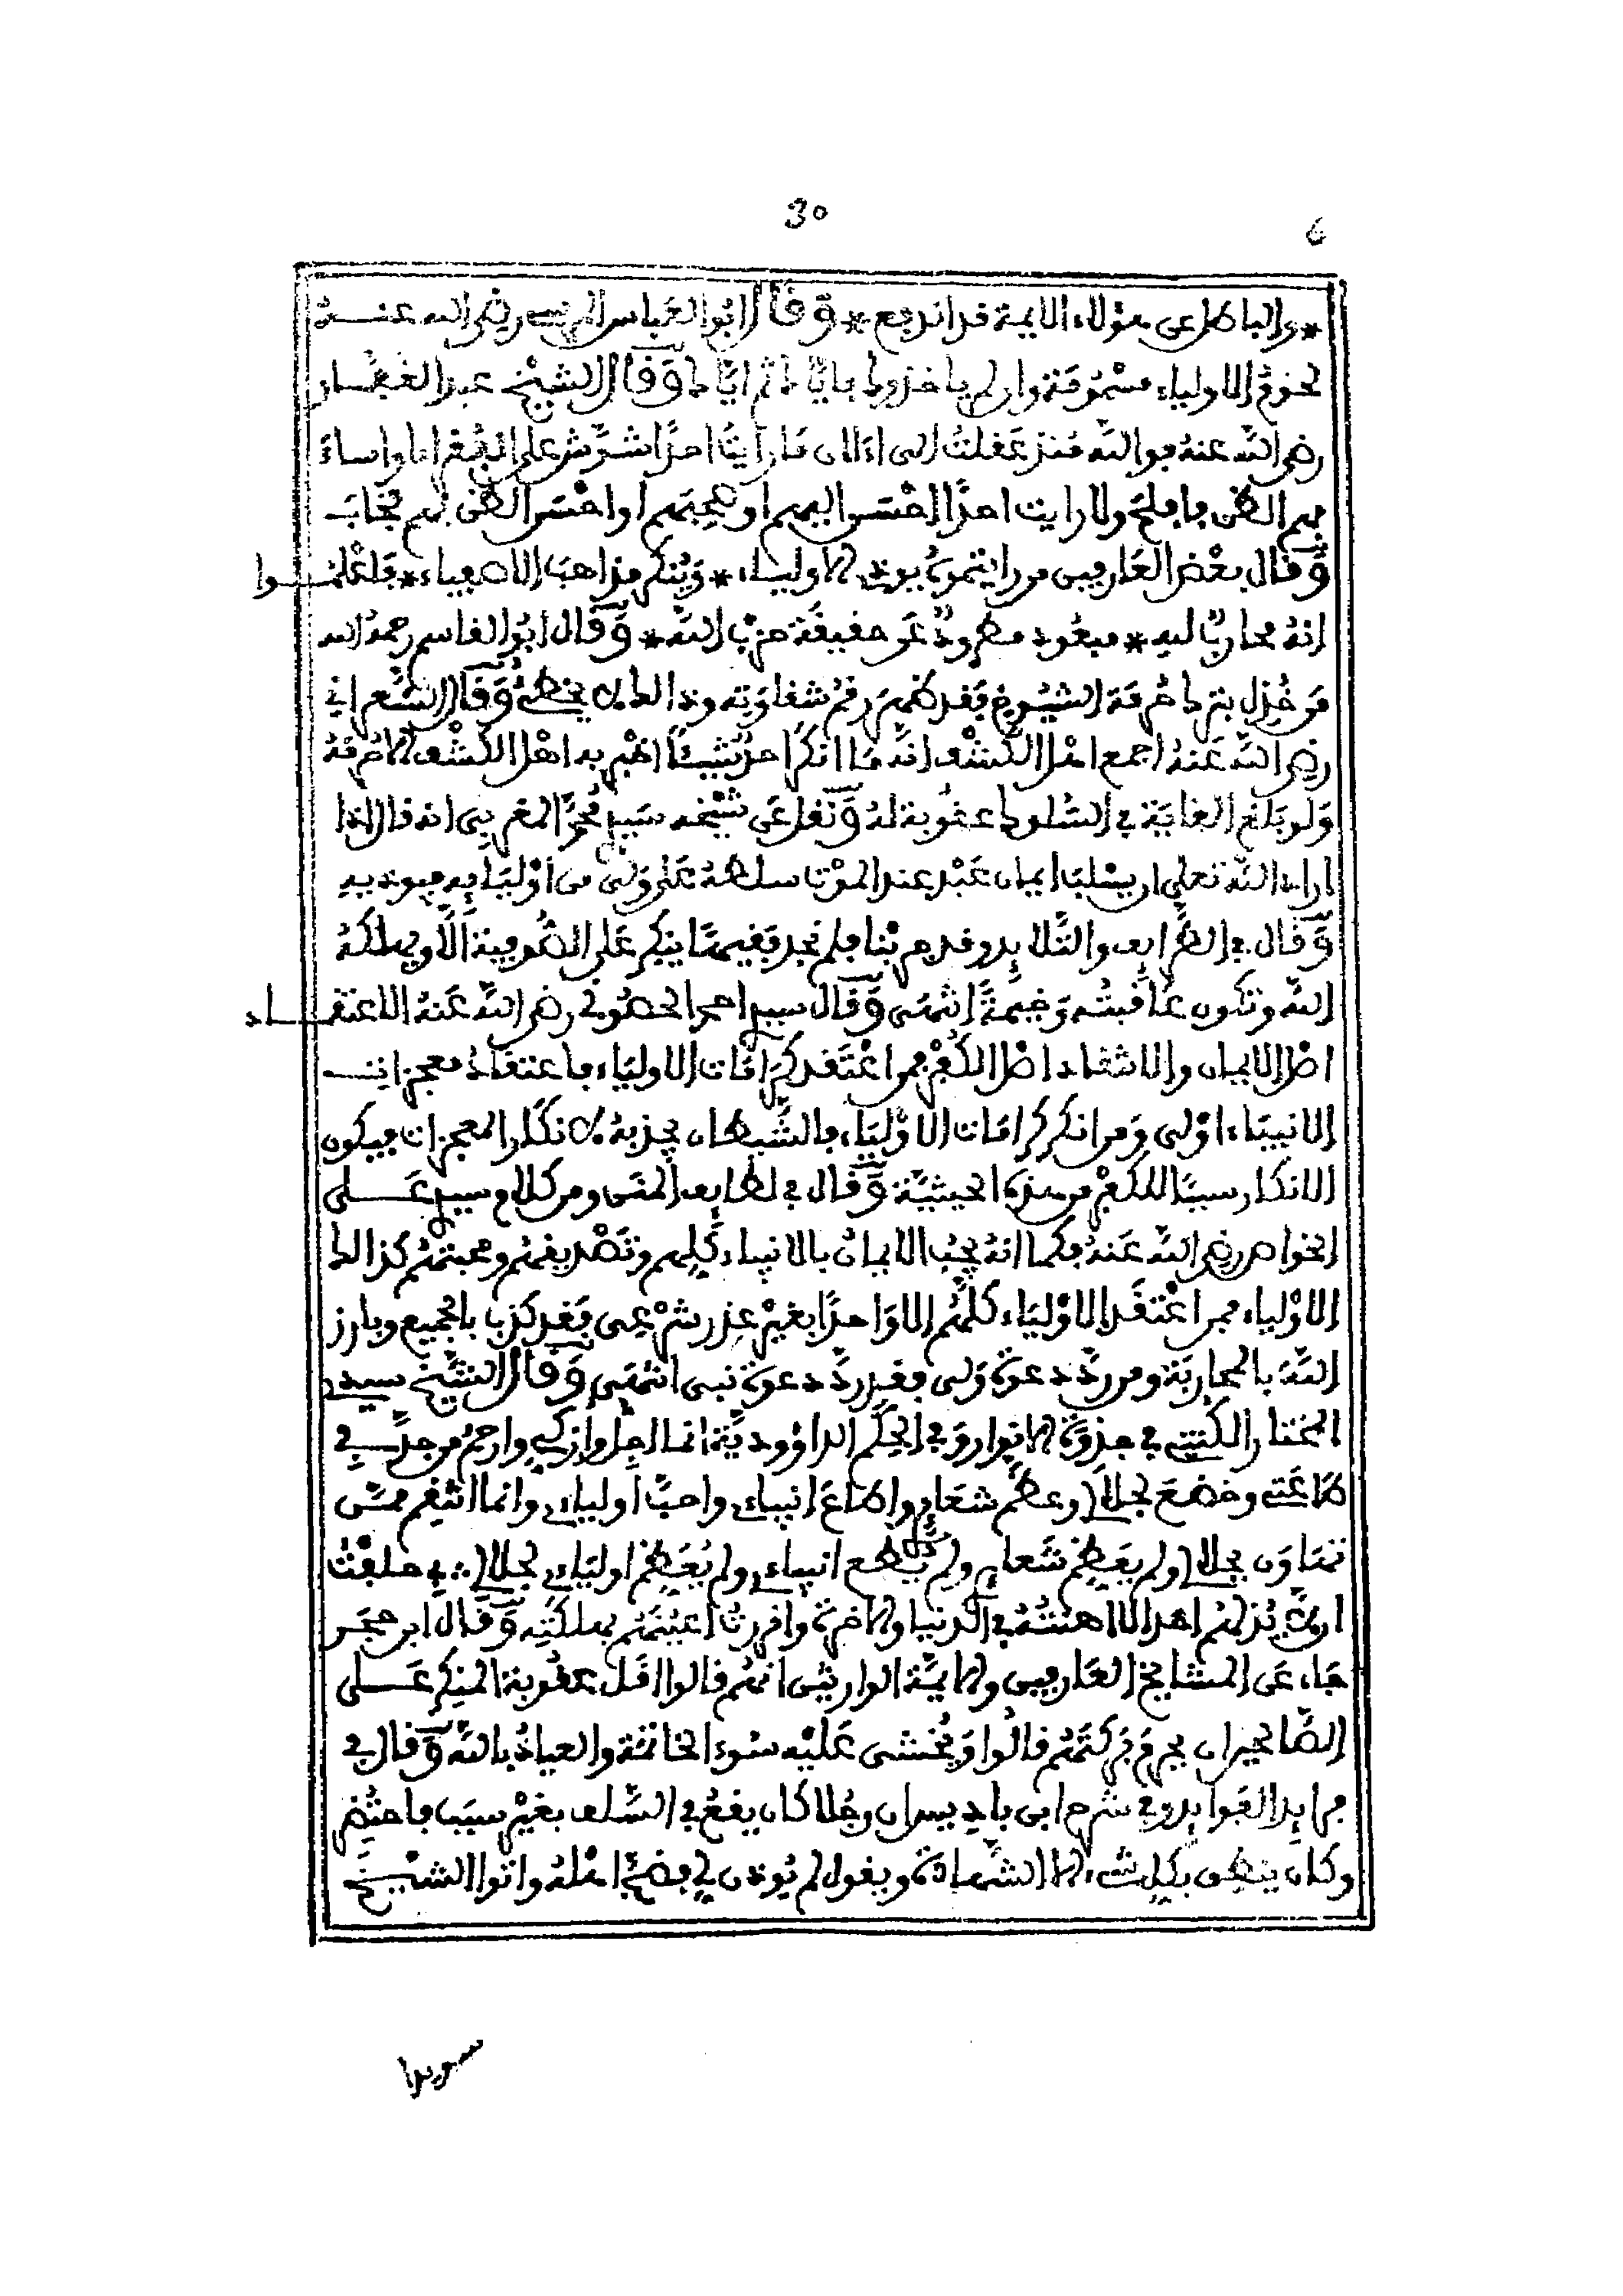 30
6
* والباطل عن هؤلاء الايمة قد اندفع * وقال ابو العباس المرسي رضي الله عنه
لحوم الاولياء مسمومة وان لم ياخذوك باياك ثم اياك وقال الشيخ عبد الغفار
رضي الله عنه فوالله منذ عقلت الى الان ما رايت احدا شوش على الفقراء او اساء
بهم الظن فافلح ولا رايت احدا احسن اليهم او صحبهم او احسن الظن بهم فخاب
وقال بعض العارفين من رايتموه يوذي الاولياء * وينكر مذاهب الاصفياء * فاعلموا
انه محارب لله * مبعود مطرود عن حقيقة حزب الله * وقال ابو القاسم رحمه الله
من خذل بترك حرمة الشيوخ فقد ظهر رقم شقاوته وذالك لا يخطئ وقال الشعراني
رضي الله عنه اجمع اهل الكشف انه ما انكر احد شيئا اخبر به اهل الكشف الا حرمه
ولو بلغ الغاية في السلوك عقوبة له ونقل عن شيخه سيدي محمد المغربي انه قال اذا
اراد الله تعلى ان يسلب ايمان عبد عند الموت سلطه على ولي من اوليايه فيوذيه
وقال في الطرايف والتلايد وقد جربنا فلم نجد فقيها ينكر على الصوفية الا ويهلكه
الله وتكون عاقبته وخيمة انتهى وقال سيدي احمد الحضوفي رضي الله عنه الاعتقاد
اصل الايمان والانتقاد اصل الكفر فمن اعتقد كرامات الاولياء فاعتقاده معجزات
الانبياء اولى ومن انكر كرامات الاولياء فالشيطان يجذبه لانكار المعجزات فيكون
الانكار سببا للكفر من هذه الحيثية وقال في لطايف المنن ومن كلام سيدي علي
الخواص رضي الله عنه فكما انه يجب الايمان بالانبياء كلهم وتصديقهم ومحبتهم كذالك
الاولياء فمن اعتقد الاولياء كلهم الا واحدا بغير عذر شرعي فقد كذب بالجميع وبارز
الله بالمحاربة ومن رد دعوة ولي فقد رد دعوة نبي انتهى وقال الشيخ سيدي
المختار الكنتي في جذوة الانوار وفي الحكم الداوودية انما اجل وازكي وارحم من جد في
طاعتي وخضع لجلالي وعظم شعايري واطاع انبياءي واحب اولياءي وانما انتقم ممن
تهاون بجلالي ولم يعظم شعايري ولم يطع انبياءي ولم يعظم اولياءي لجلالي بي حلفت
لا يذلهم احد الا اهنته في الدنيا والاخرة واقررت اعينهم بهلكته وقال ابن حجر
جاء عن المشايخ العارفين والايمة الوارثين انهم قالوا اقل عقوبة المنكر على
الصالحين ان يحرم بركتهم قالوا ويخشى عليه سوء الخاتمة والعياذ بالله وقال في
فرايد الفوايد وفي شرح ابي باديس ان رجلا كان يقع في السلف بغير سبب فاحتضر
وكان ينطق بكل شيء الا الشهادة ويقول لم يوذن لي فضج اهله واتوا الشيخ
سيدا